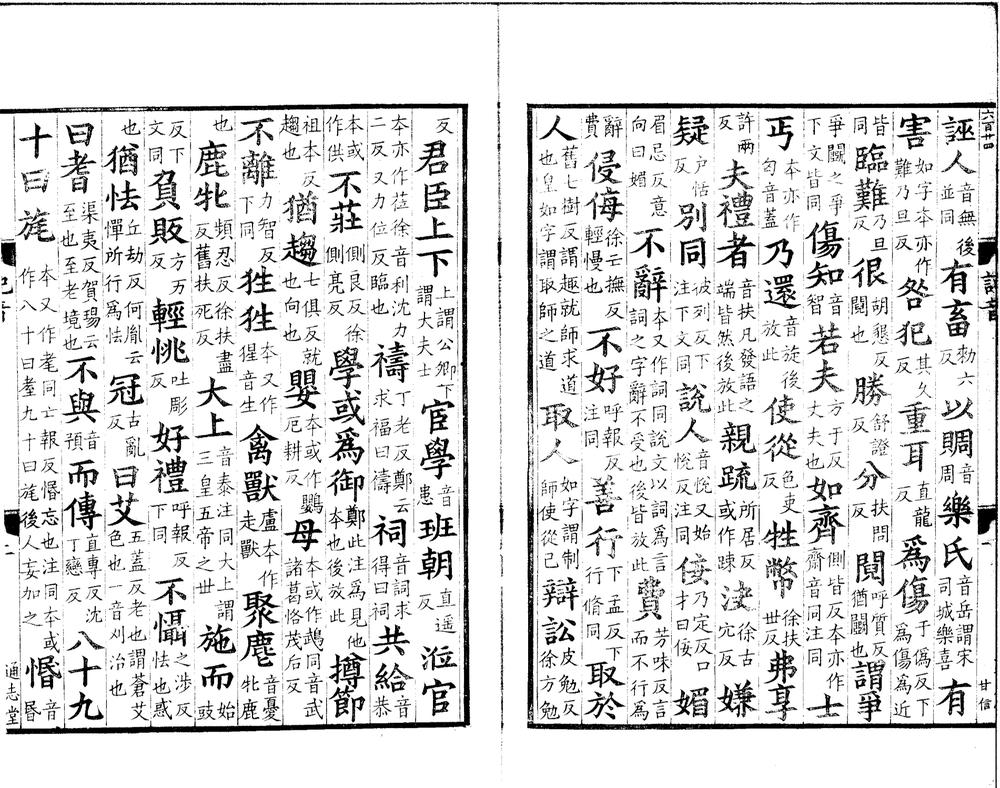 六百廿四
誣人音無並同後有畜勑六反以賙音周樂氏音岳謂宋司城樂喜有
害如字本亦作難乃旦反咎犯其久反重耳直龍反爲傷于僞反下爲傷爲近
皆同臨難乃旦反很胡懇反鬩也勝舒證反分扶問反鬩呼質反猶鬭也謂爭
爭鬭之爭下文皆同傷知音智若夫方于反丈夫也如齊側皆反本亦作齋音同注同士
丐本亦作匄音蓋乃還音旋後放此使從色吏反牲幣徐扶世反弗享
許兩反夫禮者音扶凡發語之端皆然後放此親疏所居反或作踈決徐古穴反嫌
疑户恬反別同彼列反下注下文同說人音悅又始悅反注同佞乃定反口才曰佞媚
眉忌反意向曰媚不辭本又作詞同說文以詞爲言詞之字辭不受也後皆放此費芳味反言而不行爲
辭費侵侮徐云撫反輕慢也不好呼報反注同善行下孟反下行脩同取於
人舊七樹反謂趣就師求道也皇如字謂取師之道取人如字謂制師使從己辯訟皮勉反徐方勉
甘信
反君臣上下上謂公卿下謂大夫士宦學音患班朝直遥反涖官
本亦作莅徐音利沈力二反又力位反臨也禱丁老反鄭云求福曰禱祠音詞求得曰祠共給音恭
本或作供不莊側良反徐側亮反學或爲御鄭此注爲見他本也後放此撙節
祖本反趨也猶趨士俱反就也向也嬰本或作鸚厄耕反母本或作䳇同音武諸葛恪茂后反
不離力智反下同狌狌本又作猩音生禽獸盧本作走獸聚麀音憂牝鹿
也鹿牝頻忍反徐扶盡反舊扶死反大上音泰注同大上謂三皇五帝之世施而始豉
反下文同負販方万反輕恌吐彫反好禮呼報反下同不懾之涉反怯也惑
也猶怯丘劫反何胤云憚所行爲怯冠古亂反曰艾五蓋反老也謂蒼艾色也一音刈治也
曰耆渠夷反賀瑒云至也至老境也不與音預而傳直專反沈丁戀反八十九
十曰旄本又作耄同亡報反惛忘也注同本或作八十曰耋九十曰旄後人妄加之惛音昬
二
通志堂